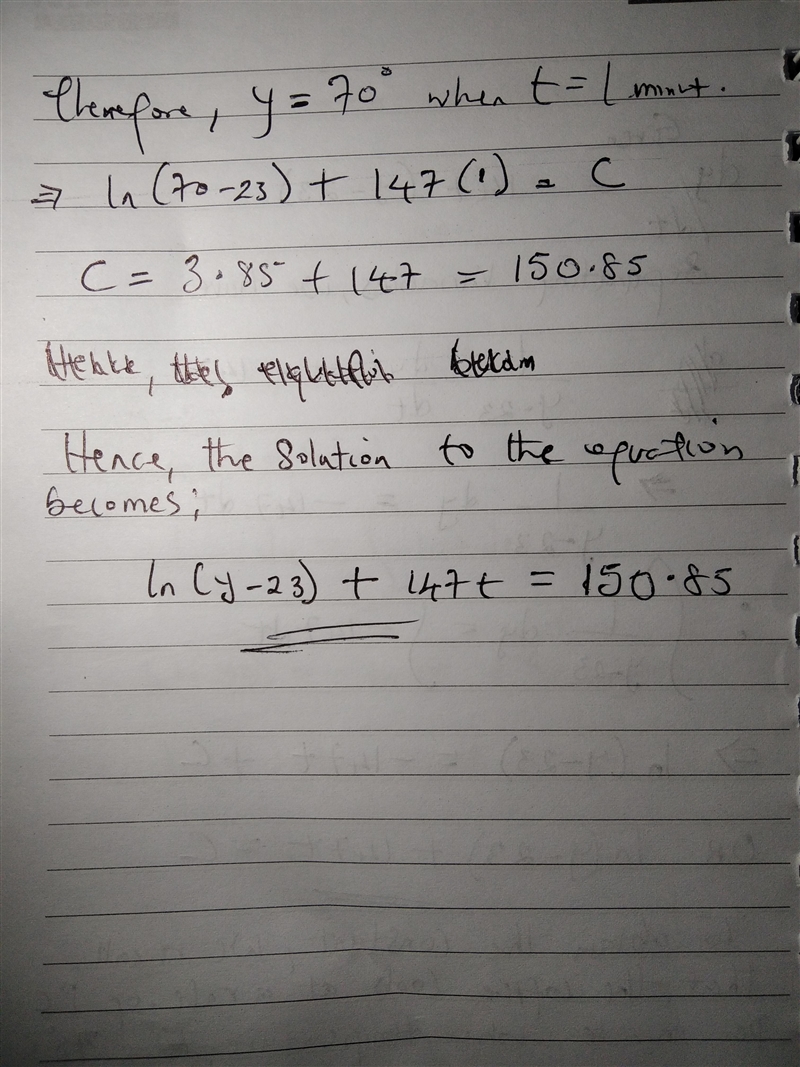 Therefore, y = 70° when t = 1 minut.
⇒ ln(70-23) + 147(1) = C
C = 3.85 + 147 = 150.85
Hence, the
Hence, the solution to the equation
becomes;
ln(y-23) + 147t = 150.85